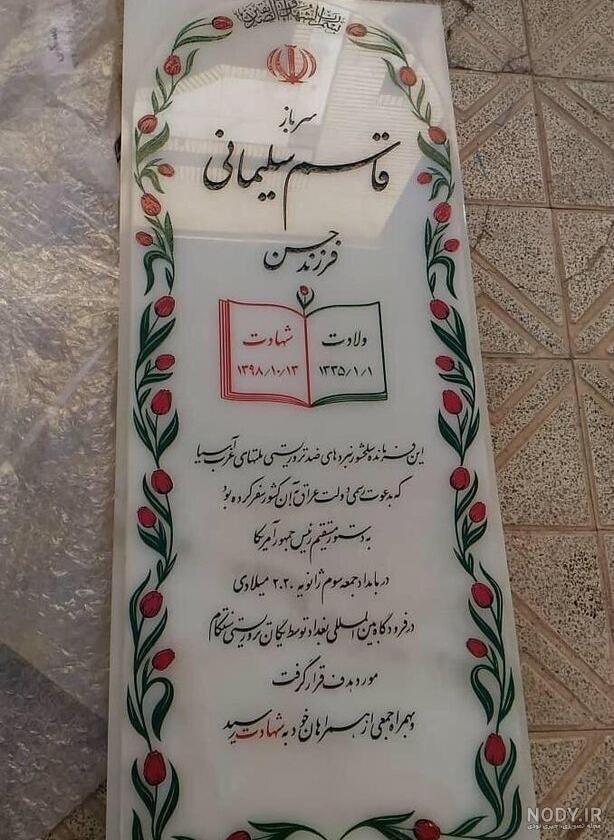 بسم رب الشهداء و الصدیقین
سرباز
قاسم سلیمانی
فرزند حسن
ولادت شهادت
۱۳۳۵/۱/۱ ۱۳۹۸/۱۰/۱۳
این فرمانده سلحشور نبردهای ضد تروریستی ملتهای غرب آسیا
که بدعوت رسمی دولت عراق به آن کشور سفر کرده بود
به دستور مستقیم رئیس جمهور آمریکا
در بامداد جمعه سوم ژانویه ۲۰۲۰ میلادی
در فرودگاه بین المللی بغداد توسط یگان تروریستی سنتکام
مورد هدف قرار گرفت
و بهمراه جمعی از همراهان خود به شهادت رسید
NODY.IR
مجله تصویری، خبری نودی